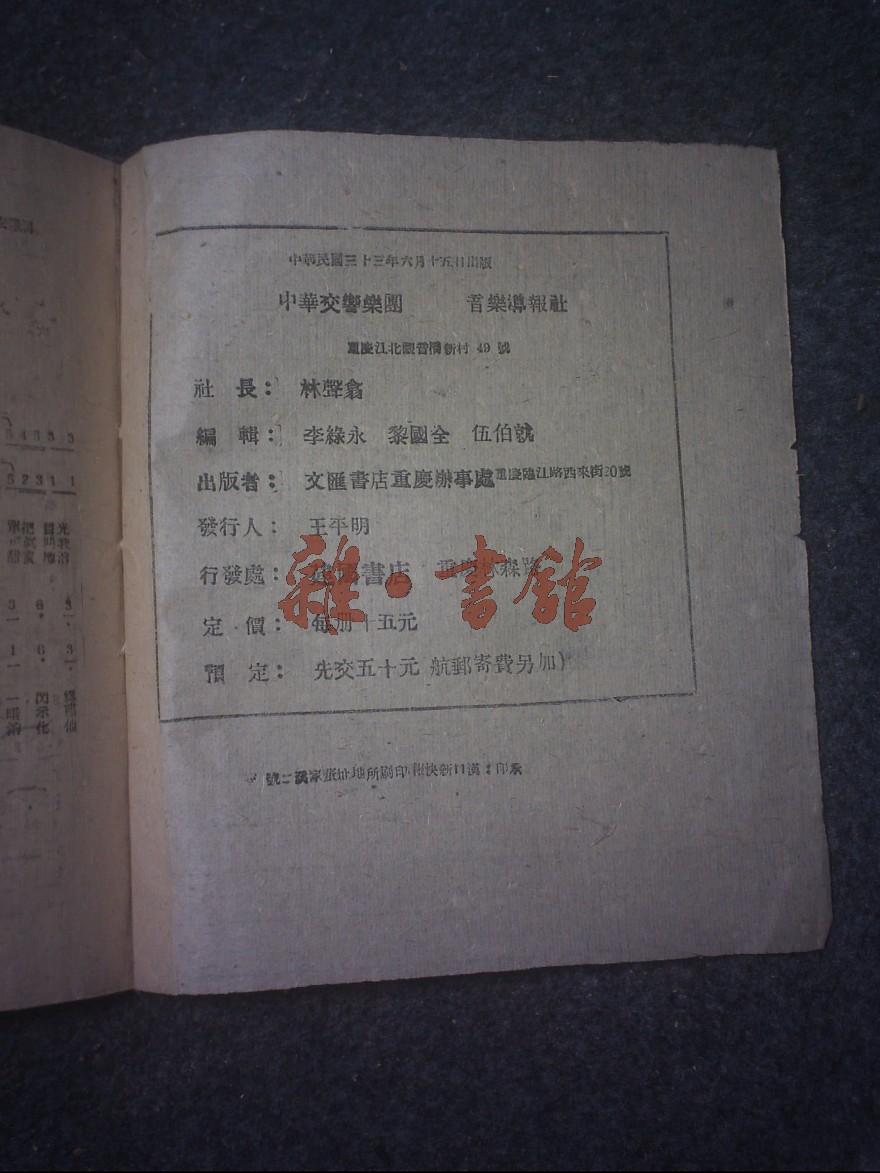 中華民國三十三年六月十五日出版
中華交響樂團 音樂導報社
重慶江北觀音橋新村 49 號
社 長： 林聲翕
編 輯： 李綠永 黎國全 伍伯就
出版者： 文匯書店重慶辦事處 重慶臨江路西來街20號
發行人： 王平明
行發處： 建國書店 重慶林森路
定 價： 每册十五元
預 定： 先交五十元 航郵寄費另加)
號二溪家張址地所刷印報快新口漢：印承
雜·書館
5 4 3 3 3
5 2 3 1 1